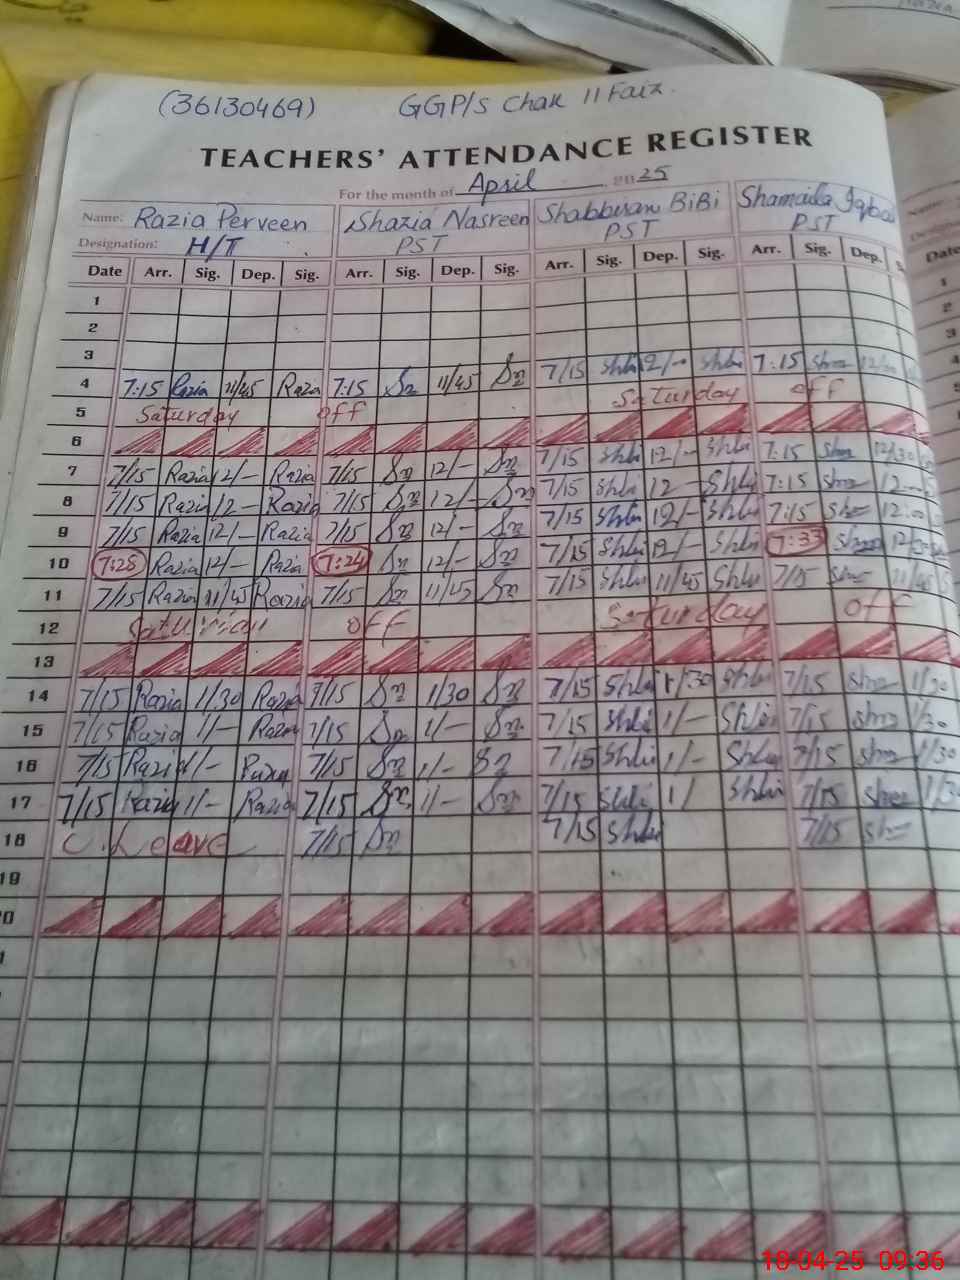 (36130469) GGP/S Chak 11 Faiz.
TEACHERS' ATTENDANCE REGISTER
For the month of April 2025
Name: Razia Perveen Shazia Nasreen Shabberan BiBi Shamaila Iqbal
Designation: H/T PST PST PST
Date Arr. Sig. Dep. Sig. Arr. Sig. Dep. Sig. Arr. Sig. Dep. Sig. Arr. Sig. Dep.
1
2
3
4 7:15 Razia 11/45 Razia 7:15 Sn 11/45 Sn 7/15 Shbi 12/- Shbi 7:15
5 Saturday off Saturday off
6
7 7/15 Razia 12/- Razia 7/15 Sn 12/- Sn 7/15 Shbi 12/- Shbi 7:15 12/30
8 7/15 Razia 12- Razia 7/15 Sn 12/- Sn 7/15 Shbi 12- Shbi 7:15
9 7/15 Razia 12/- Razia 7/15 Sn 12/- Sn 7/15 Shbi 12/- Shbi 7:15 12:00
10 7:25 Razia 12/- Razia 7:24 Sn 12/- Sn 7/15 Shbi 12/- Shbi 7:33
11 7/15 Razia 11/45 Razia 7/15 Sn 11/45 Sn 7/15 Shbi 11/45 Shbi 7/15 11/45
12 Saturday off Saturday off
13
14 7/15 Razia 1/30 Razia 7/15 Sn 1/30 Sn 7/15 Shbi 1/30 Shbi 7/15 1/30
15 7/15 Razia 1/- Razia 7/15 Sn 1/- Sn 7/15 Shbi 1/- Shbi 7/15 1/30
16 7/15 Razia 1/- Razia 7/15 Sn 1/- Sn 7/15 Shbi 1/- Shbi 7/15 1/30
17 7/15 Razia 1/- Razia 7/15 Sn 1/- Sn 7/15 Shbi 1/ Shbi 7/15
18 C. Leave 7/15 Sn 7/15 Shbi 7/15
19
18-04-25 09:36